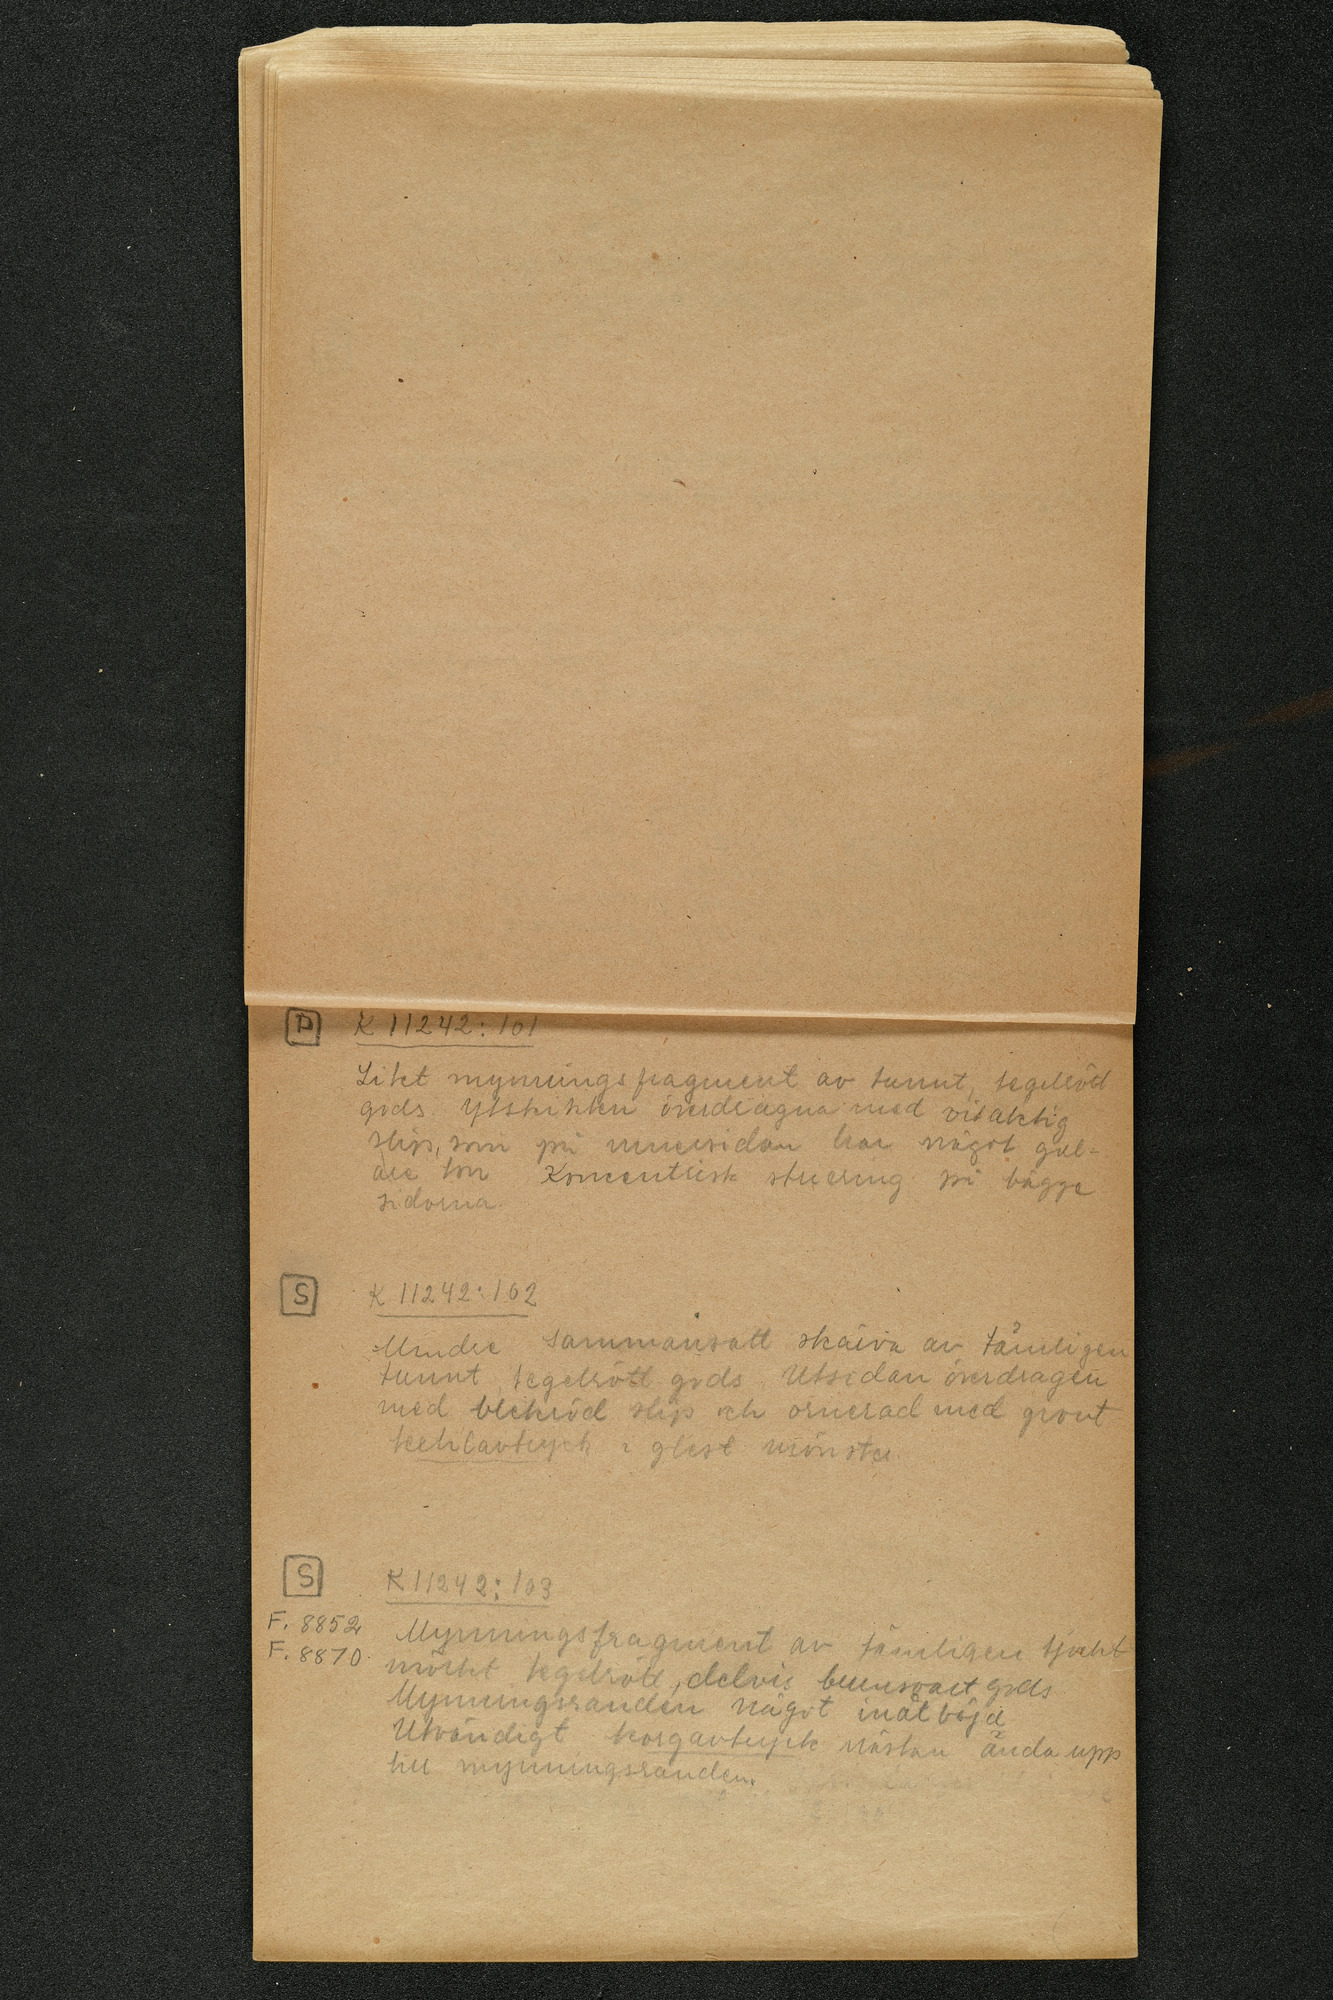 P K 11242:101
Litet mynningsfragment av tunnt, tegelröd
gods. Ytskikten överdragna med vitaktig
slip, som på innersidan har något gul-
are ton Koncentrisk striering på bägge
sidorna.
S K 11242:102
Mindre sammansatt skärva av tämligen
tunnt tegelrött gods. Utsidan överdragen
med blekröd slip och ornerad med grovt
avtryck i glest mönster.
S K 11242:103
F. 8852
F. 8870
Mynningsfragment av tämligen tjockt
mörkt tegelrött, delvis brunsvart gods
Mynningsranden något inåtböjd
Utvändigt korgavtryck nästan ända upp
till mynningsranden.